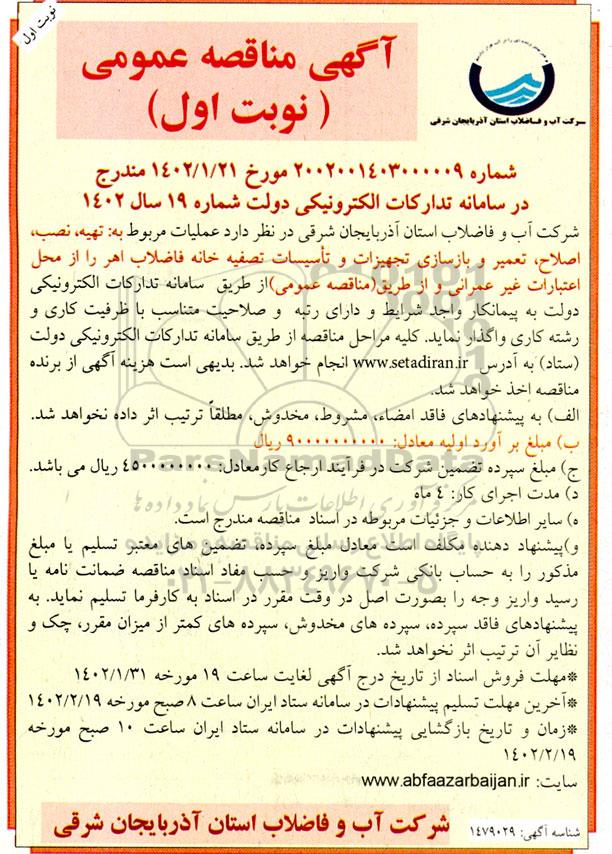 نوبت اول
آگهی مناقصه عمومی
( نوبت اول)
شرکت آب و فاضلاب استان آذربایجان شرقی
شماره ۲۰۰۲۰۰۱۴۰۳۰۰۰۰۰۹ مورخ ۱۴۰۲/۱/۲۱ مندرج
در سامانه تدارکات الکترونیکی دولت شماره ۱۹ سال ۱۴۰۲
شرکت آب و فاضلاب استان آذربایجان شرقی در نظر دارد عملیات مربوط به: تهیه، نصب،
اصلاح، تعمیر و بازسازی تجهیزات و تأسیسات تصفیه خانه فاضلاب اهر را از محل
اعتبارات غیر عمرانی و از طریق(مناقصه عمومی)از طریق سامانه تدارکات الکترونیکی
دولت به پیمانکار واجد شرایط و دارای رتبه و صلاحیت متناسب با ظرفیت کاری و
رشته کاری واگذار نماید. کلیه مراحل مناقصه از طریق سامانه تدارکات الکترونیکی دولت
(ستاد) به آدرس www.setadiran.ir انجام خواهد شد. بدیهی است هزینه آگهی از برنده
مناقصه اخذ خواهد شد.
الف) به پیشنهادهای فاقد امضاء، مشروط، مخدوش، مطلقاً ترتیب اثر داده نخواهد شد.
ب) مبلغ بر آورد اولیه معادل: ۹۰۰۰۰۰۰۰۰۰۰ ریال
ج) مبلغ سپرده تضمین شرکت در فرآیند ارجاع کارمعادل: ۴۵۰۰۰۰۰۰۰۰ ریال می باشد.
د) مدت اجرای کار: ۴ ماه
ه) سایر اطلاعات و جزئیات مربوطه در اسناد مناقصه مندرج است.
و)پیشنهاد دهنده مکلف است معادل مبلغ سپرده، تضمین های معتبر تسلیم یا مبلغ
مذکور را به حساب بانکی شرکت واریز و حسب مفاد اسناد مناقصه ضمانت نامه یا
رسید واریز وجه را بصورت اصل در وقت مقرر در اسناد به کارفرما تسلیم نماید. به
پیشنهادهای فاقد سپرده، سپرده های مخدوش، سپرده های کمتر از میزان مقرر، چک و
نظایر آن ترتیب اثر نخواهد شد.
*مهلت فروش اسناد از تاریخ درج آگهی لغایت ساعت ۱۹ مورخه ۱۴۰۲/۱/۳۱
*آخرین مهلت تسلیم پیشنهادات در سامانه ستاد ایران ساعت ۸ صبح مورخه ۱۴۰۲/۲/۱۹
*زمان و تاریخ بازگشایی پیشنهادات در سامانه ستاد ایران ساعت ۱۰ صبح مورخه
۱۴۰۲/۲/۱۹
سایت: www.abfaazarbaijan.ir
شرکت آب و فاضلاب استان آذربایجان شرقی
شناسه آگهی: ۱۴۷۹۰۲۹
ParsNamadData
مرکز فرآوری اطلاعات پارس نماد داده ها
پایگاه اطلاع رسانی مناقصه و مزایده
۰۲۱-۸۸۳۴۹۶۷۰-۵